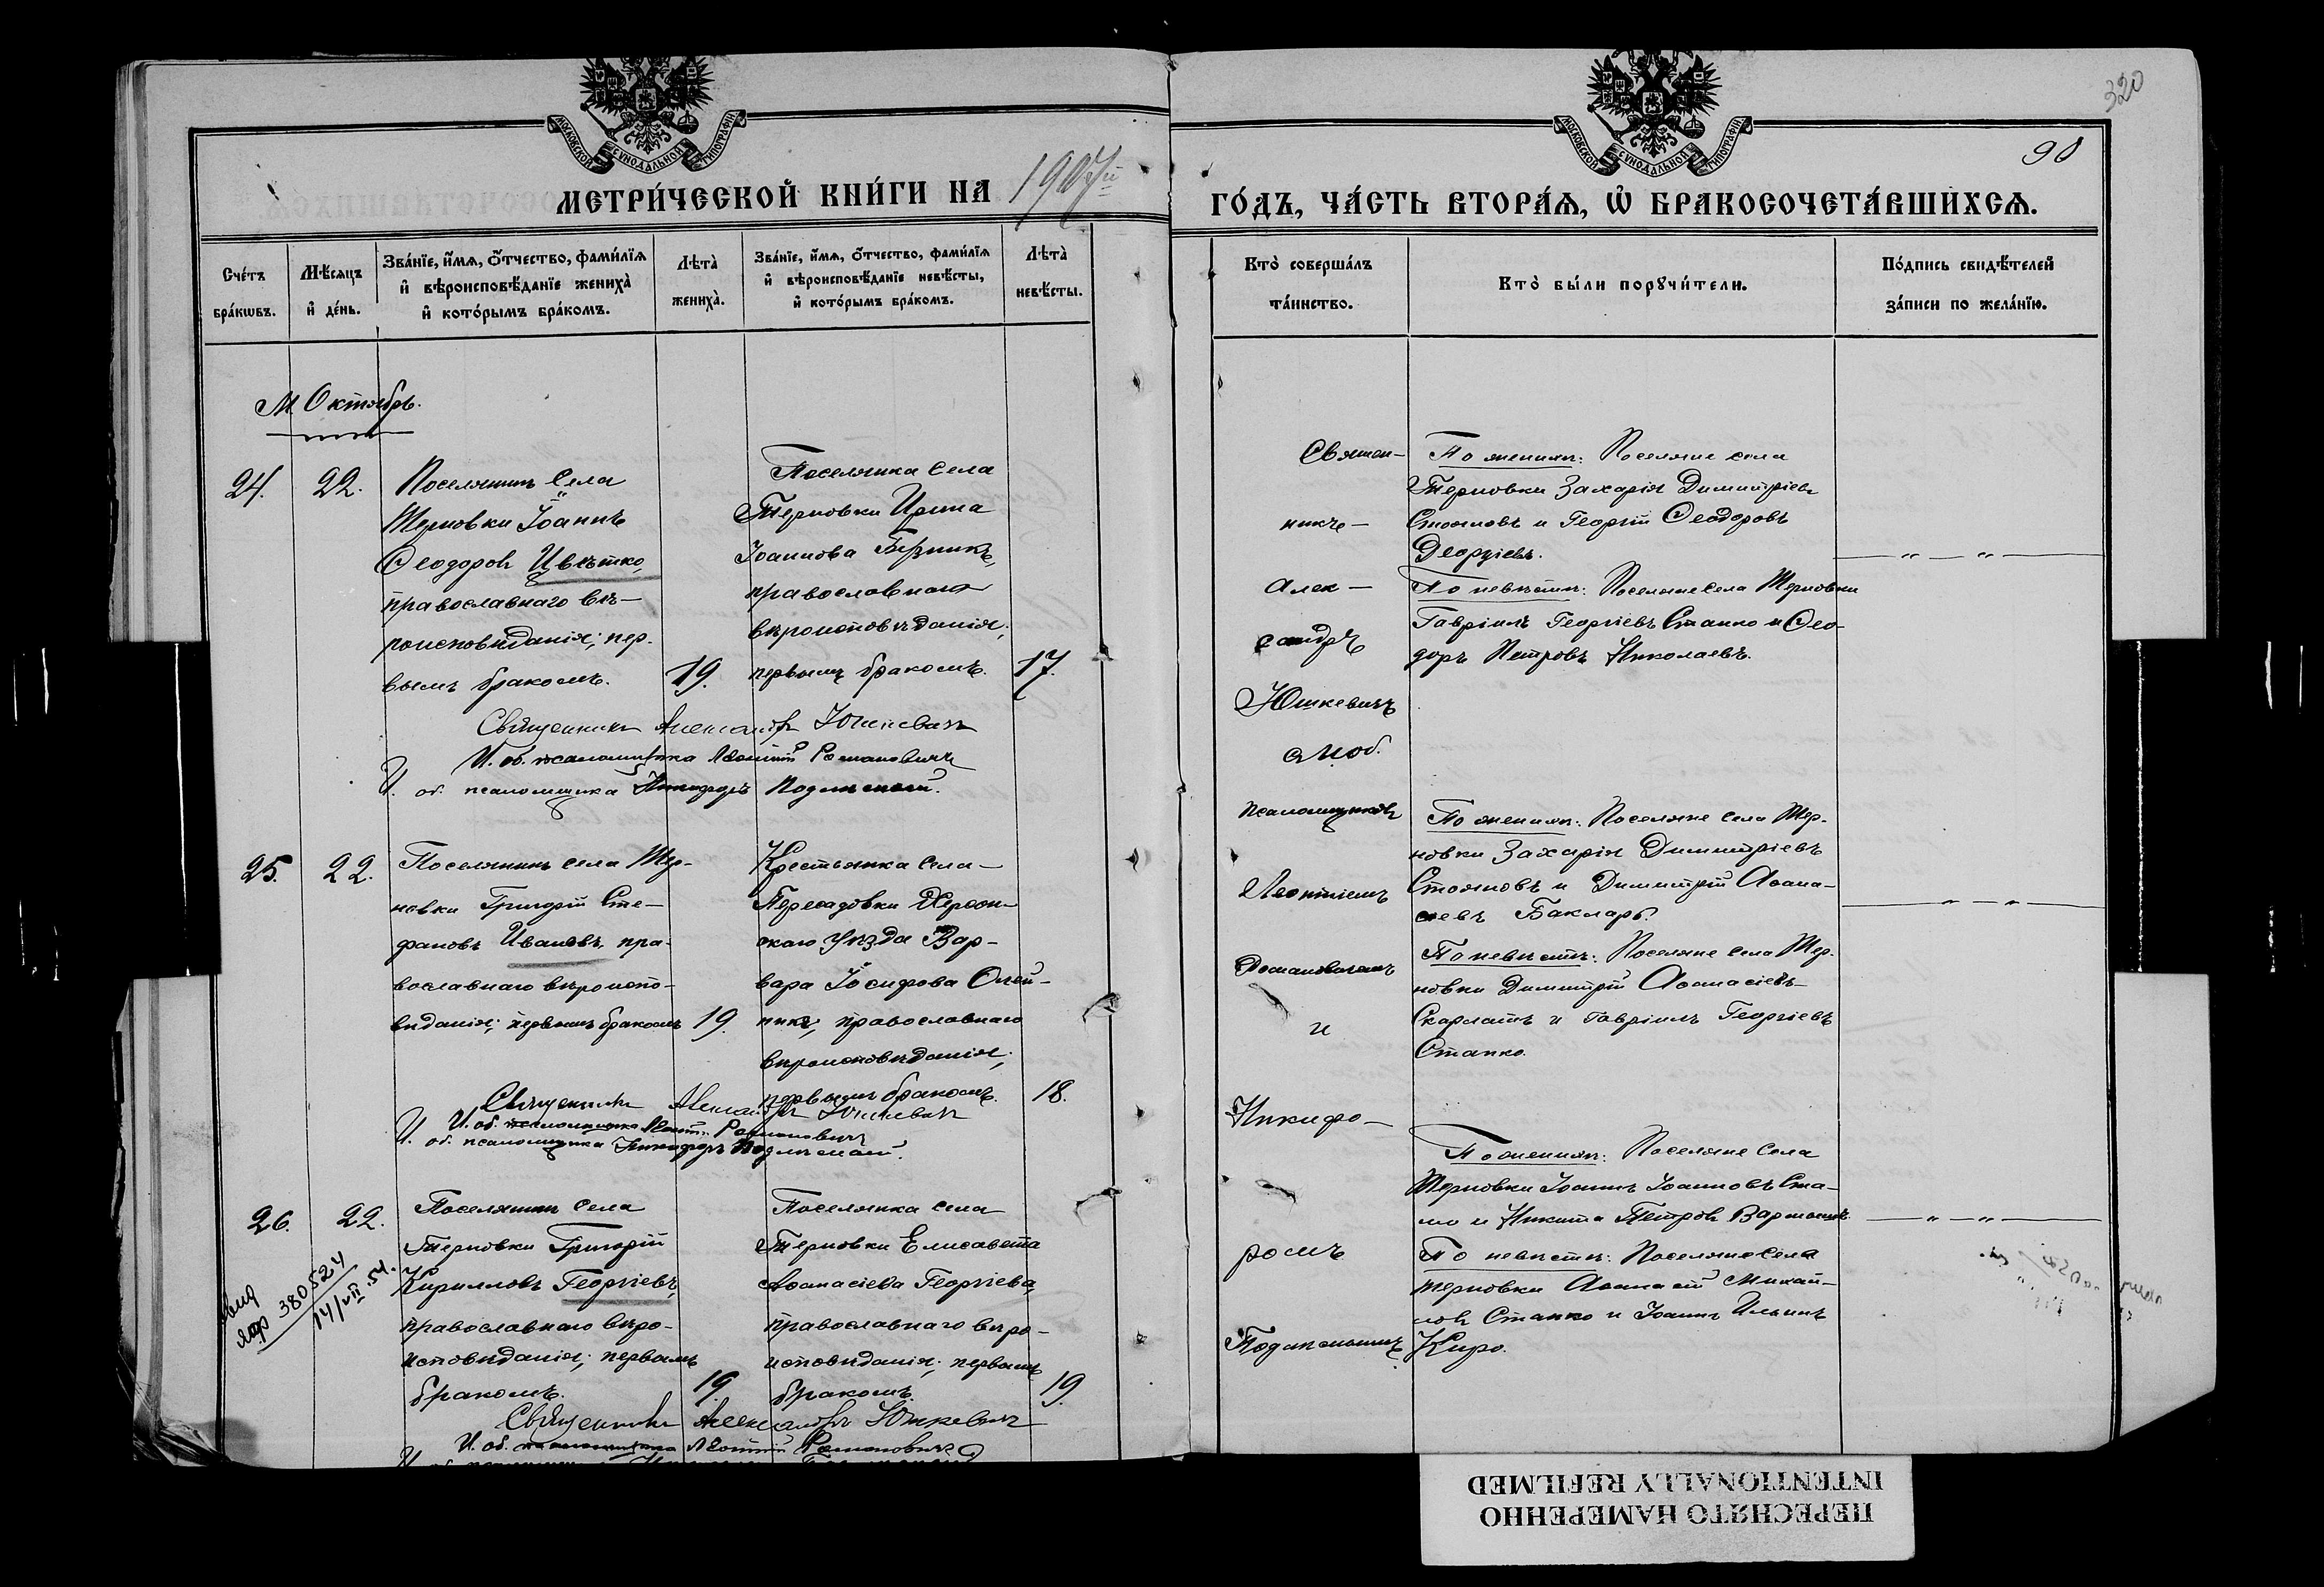 МОСКОВСКОЙ СѴНОДАЛЬНОЙ ТИПОГРАФІИ
МЕТРИ́ЧЕСКОЙ КНИ́ГИ НА 1907й
Сче́тъ бра́кωвъ.
Мѣ́сяцъ и҆ де́нь.
Зва́нїе, и҆́мѧ, ѻ҆́тчество, фами́лїѧ
и҆ вѣроисповѣ́данїе жениха̀
и҆ кото́рымъ бра́комъ.
Лѣта̀ жениха̀.
Зва́нїе, и҆́мѧ, ѻ҆́тчество, фами́лїѧ
и҆ вѣроисповѣ́данїе невѣ́сты,
и҆ кото́рымъ бра́комъ.
Лѣта̀ невѣ́сты.
М. Октябрь.
24.
22.
Поселянинъ села
Терновки Іоаннъ
Ѳеодоровъ Цвѣтко,
православнаго вѣ-
роисповѣданія; пер-
вымъ бракомъ.
19.
Поселянка села
Терновки Ирина
Іоаннова
православнаго
вѣроисповѣданія;
первымъ бракомъ.
17.
Священникъ Александръ Юшкевичъ
И. об. псаломщика Леонтій Романовичъ
И. об. псаломщика Никифоръ
25.
22.
Поселянинъ села Тер-
новки Григорій Сте-
фановъ Ивановъ, пра-
вославнаго вѣроиспо-
вѣданія; первымъ бракомъ
19.
Крестьянка села
Пересадовки Херсон-
скаго уѣзда Вар-
вара Іосифова Олей-
никъ, православнаго
вѣроисповѣданія;
первымъ бракомъ.
18.
Священникъ Александръ Юшкевичъ
И. об. псаломщика Леонтій Романовичъ
И. об. псаломщика Никифоръ
26.
22.
Поселянинъ села
Терновки Григорій
Кирилловъ Георгіевъ,
православнаго вѣро-
исповѣданія; первымъ
бракомъ.
19.
Поселянка села
Терновки Елисавета
Аѳанасіева Георгіева,
православнаго вѣро-
исповѣданія; первымъ
бракомъ.
19.
380524
14/VII.54.
Священникъ Александръ Юшкевичъ
И. об. псаломщика Леонтій Романовичъ
320
90
МОСКОВСКОЙ СѴНОДАЛЬНОЙ ТИПОГРАФІИ
ГО́ДЪ, ЧА́СТЬ ВТОРА́Ѧ, Ѽ БРАКОСОЧЕТА́ВШИХСѦ.
Кто̀ соверша́лъ та́инство.
Кто̀ бы́ли порꙋчи́тели.
По́дпись свидѣ́телей за́писи по жела́нїю.
Священ-
никъ
Алек-
сандръ
Юшкевичъ
псаломщиковъ
Леонтіемъ
Романовичемъ
и
Никифо-
ромъ
По женихѣ: Поселяне села
Терновки Захарія Димитріевъ
Стояновъ и Георгій Ѳеодоровъ
Георгіевъ.
По невѣстѣ: Поселяне села Терновки
Гавріилъ Георгіевъ Станко и Ѳео-
доръ Петровъ Николаевъ.
По женихѣ: Поселяне села Тер-
новки Захарія Димитріевъ
Стояновъ и Димитрій Аѳана-
сіевъ Бакларъ.
По невѣстѣ: Поселяне села Тер-
новки Димитрій Аѳанасіевъ
Скарлатъ и Гавріилъ Георгіевъ
Станко.
По женихѣ: Поселяне села
Терновки Іоаннъ Іоанновъ
и Никита Петровъ
По невѣстѣ: Поселяне села
Терновки Аѳанасій Михай-
ловъ Станко и Іоаннъ Ильинъ
Киро.
ПЕРЕСНЯТО НАМЕРЕННО
INTENTIONALLY REFILMED